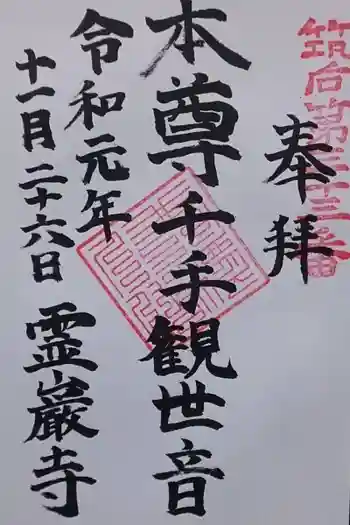 筑后第三十三番
奉拝
本尊千手観世音
令和元年
十一月二十六日
霊巌寺